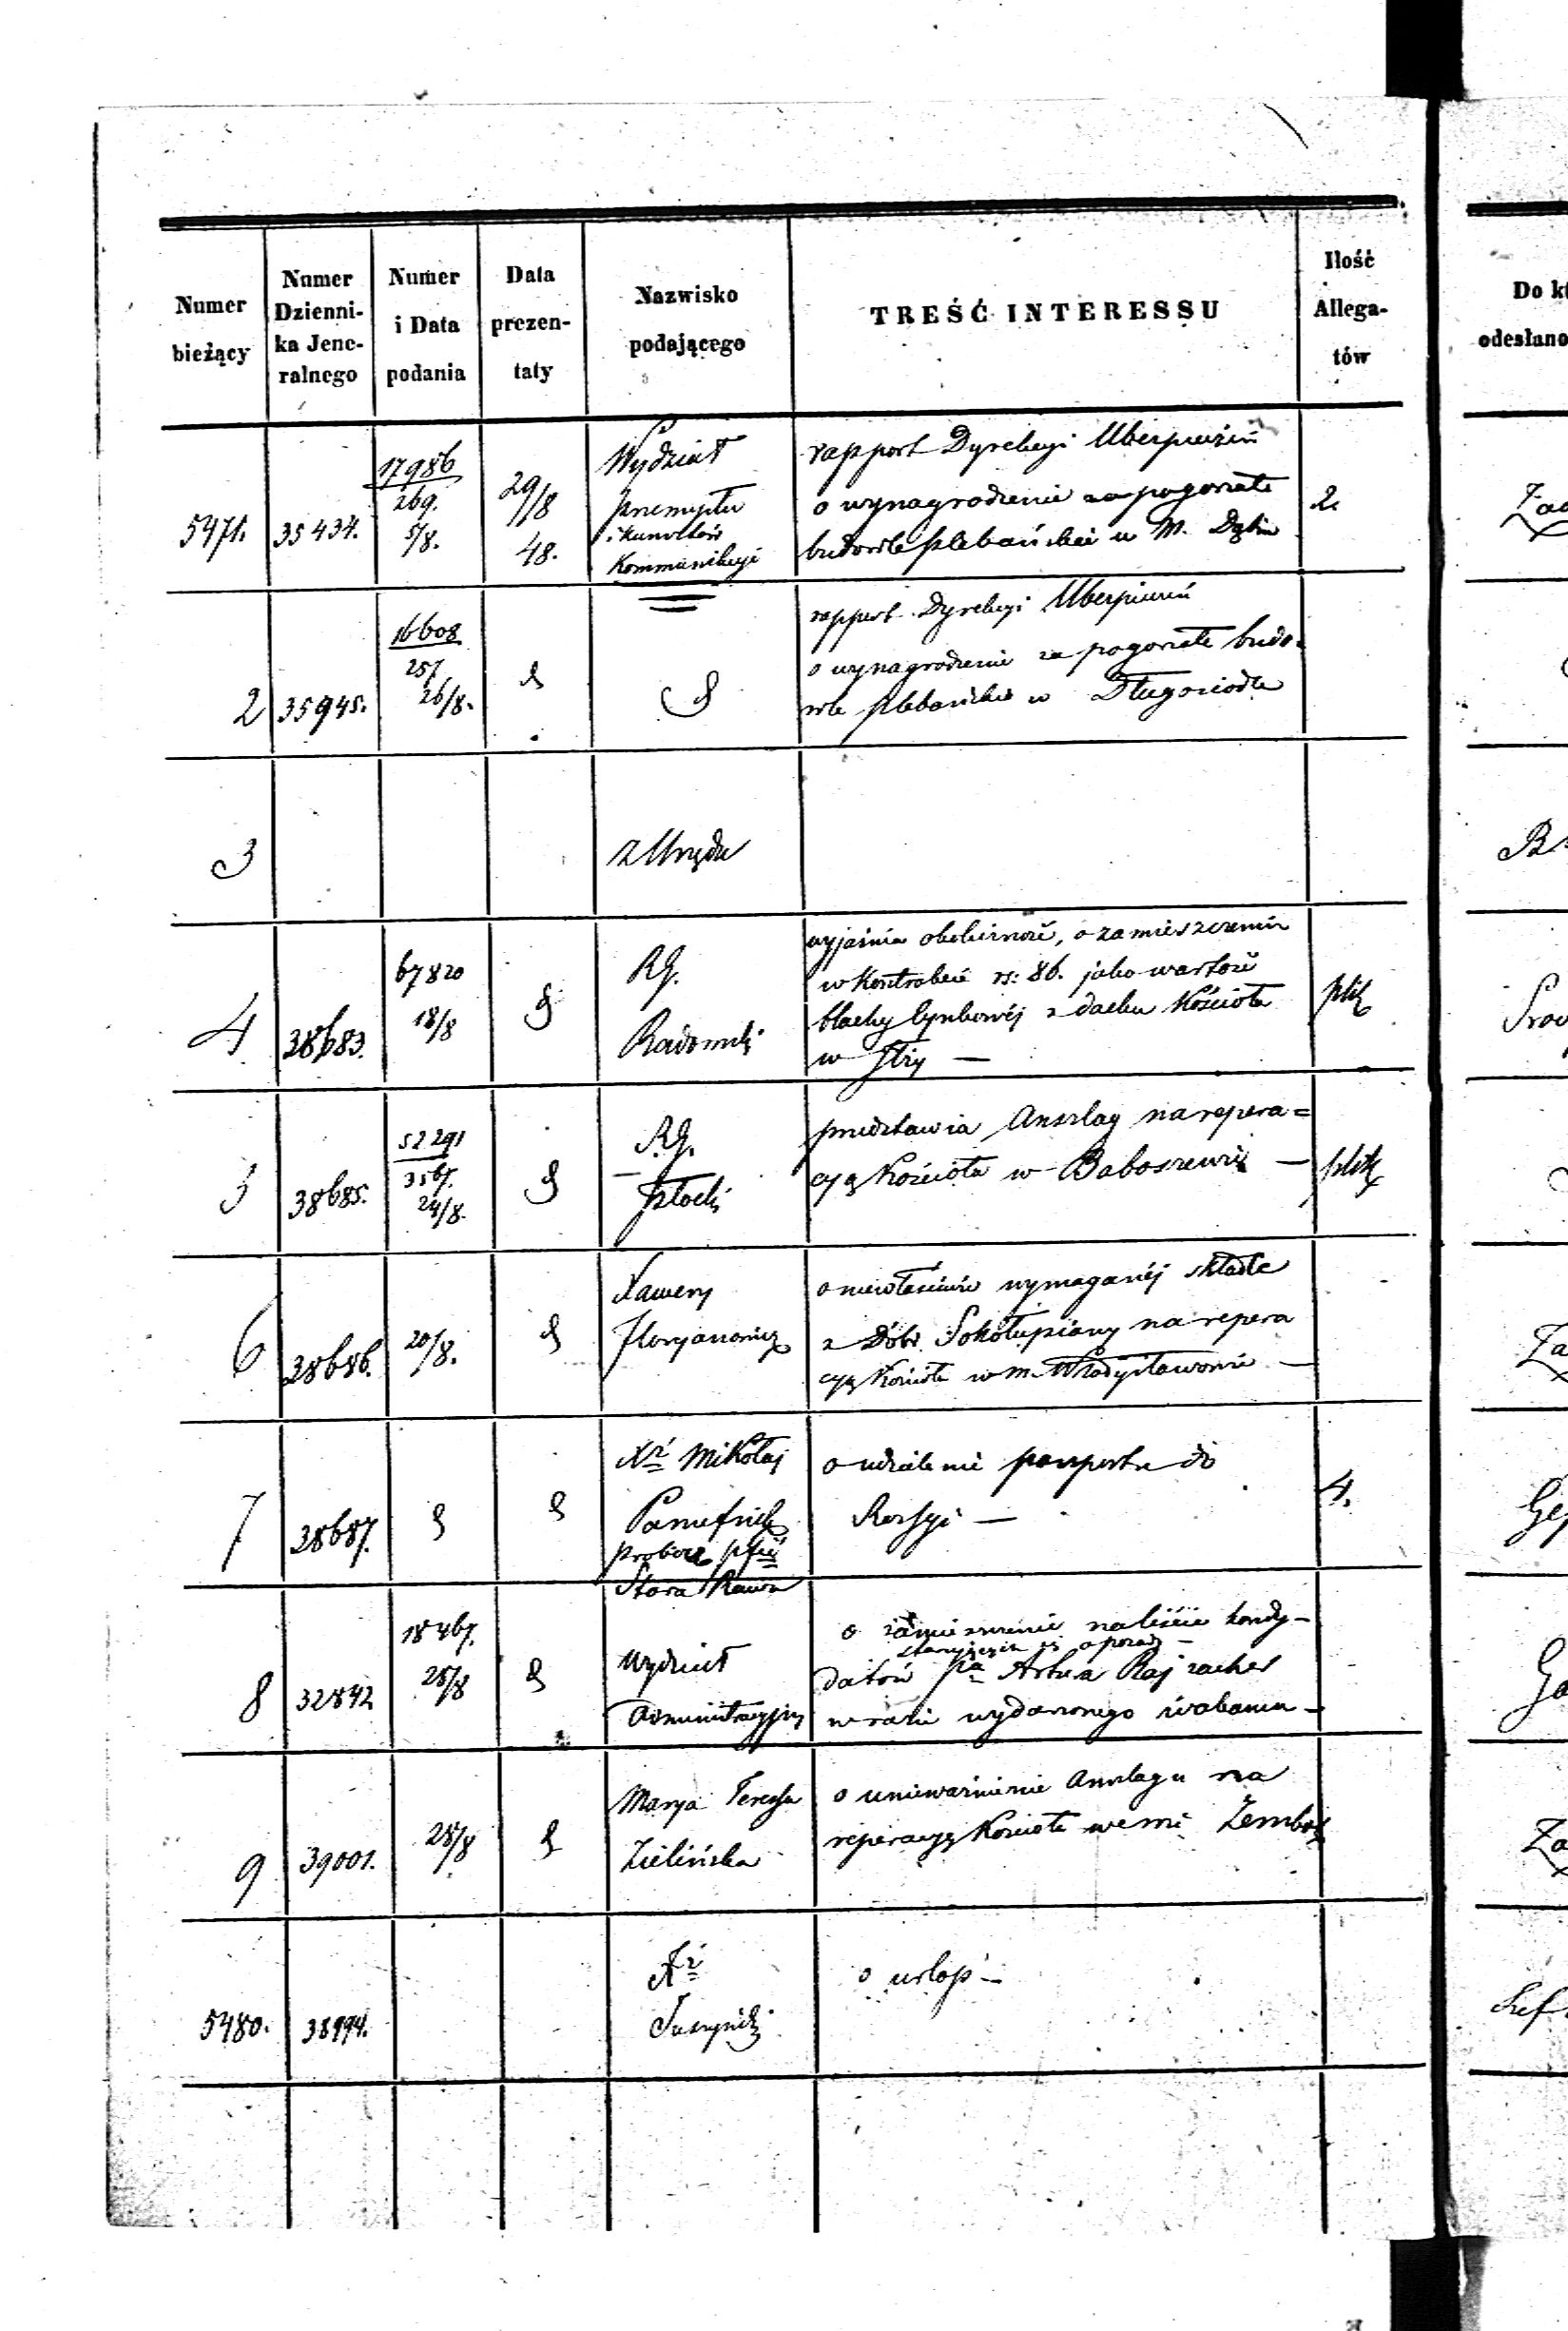 Numer bieżący
Numer Dzienni-ka Jene-ralnego
Numer i Data podania
Data prezen-taty
Nazwisko podającego
TREŚĆ INTERESSU
Ilość Allega-tów
Do k
odesłano
5471.
35434.
17986
269.
5/8.
29/8
48.
Wydział
przemysłu
i kunsztów
Kommunikuje
rapport Dyrekcyi Ubespieczeń
o wynagrodzenie za pogorzałe
budowle plebańskie w M. Dąbiu
2.
2
35945.
16608
257.
26/8.
rapport Dyrekcyi Ubespieczeń
o wynagrodzenie za pogorzałe budo-
wle plebańskie w Długosiodle
3
z Urzędu
4
38683.
67820
18/8
RG.
Radomski
wyjaśnia okoliczność, o zamieszczeniu
w Kontrakcie rs: 86. jako wartość
blachy cynkowéj z dachu Kościoła
w
plik
5
38685.
52291
3567.
24/8.
RG.
Płocki
przedstawia Anszlag na repera=
cyą Kościoła w Baboszewie —
plik
6
38686.
20/8.
Xawery
Floryanowicz
o niewłaściwie wymaganéj składce
z Dóbr Sokołupiany na repera
cyą Kościoła w m. Władysławowie —
7
38687.
Xd Mikołaj
proboszcz
Stara Rawa
o udzielenie paszportu do
Rossyi —
4.
8
32842
18467.
28/8
Wydział
Administracyjny
o zamieszczenie na liście kandy-
datów pa Artura
w razie wydarzonego wakansu —
9
39001.
28/8
Marya Teressa
Zielińska
o unieważnienie Anszlagu na
reperacyą Kościoła we wsi
5480.
38994.
Xd
o urlop —